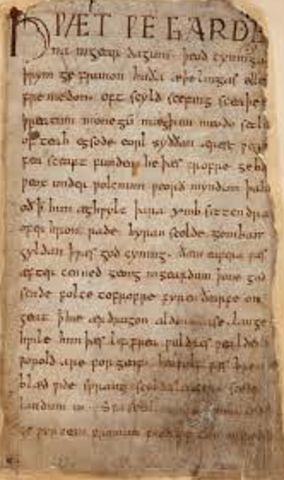 HǷÆT ǷE GARDE
na ingear dagum. þeod cyninga
þrym ge frunon huða æþelingas elle
fremedon. oft scyld scefing sceaþe
þreatum monegū mægþum meodo setl
of teah egsode eorl syððan ærest ƿear
fea sceaft funden he þæs frofre geba
ƿeox under ƿolcnum ƿeorð myndum þah
oð ꝥ him æghƿylc þara ymb sittendra
ofer hron rade hyran scolde gomban
gyldan ꝥ ƿæs god cyning. ðæm eafera ƿæs
æfter cenned geong ingeardum þone god
sende folce tofrofre fyren ðearfe on
geat ꝥ hie ær drugon aldor ase. lange
hƿile him þæs lif frea ƿuldres ƿealdend
ƿorold are for geaf. beoƿulf ƿæs breme
blæd ƿide sprang scyldes eafera scede
landum in. Sƿa sceal
ge ƿyrcean fromum feoh giftum